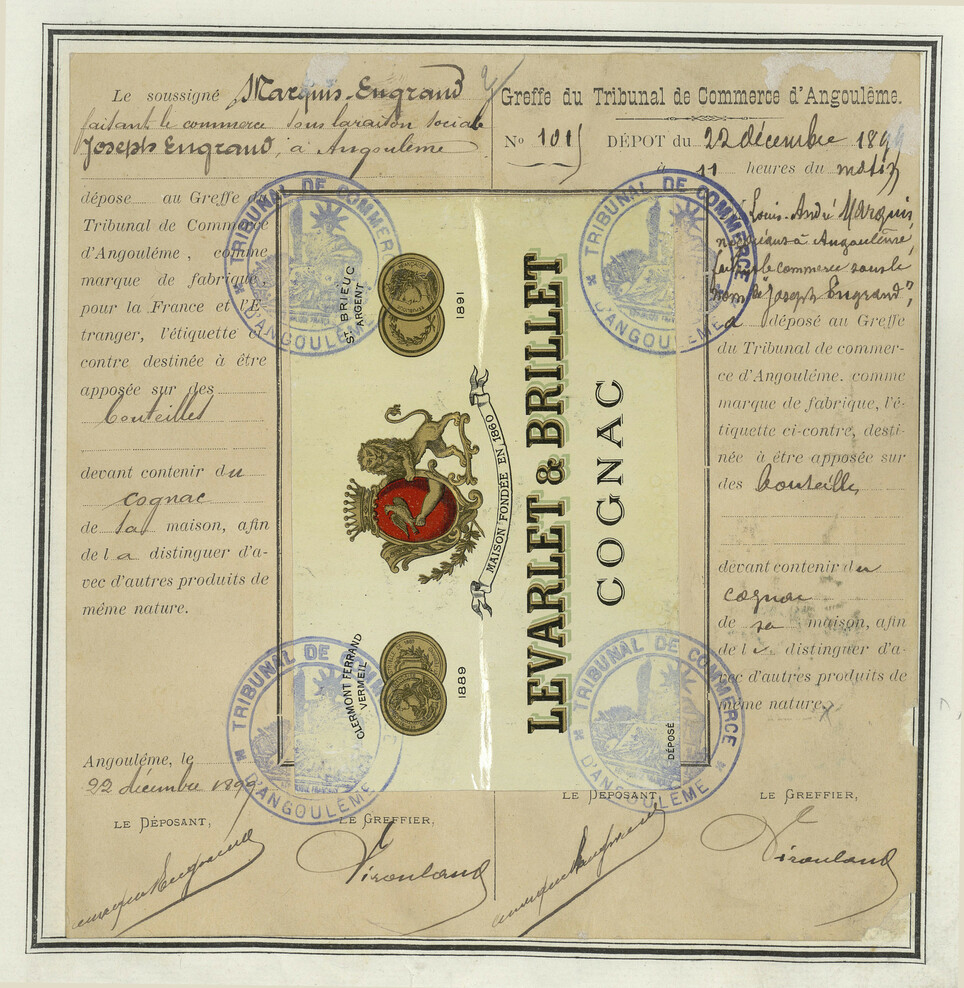 Le soussigné Marquis-Engrand
faisant le commerce sous la raison sociale
Joseph Engrand, à Angoulême
dépose au Greffe du
Tribunal de Commerce
d'Angoulême, comme
marque de fabrique,
pour la France et l'É-
tranger, l'étiquette ci-
contre destinée à être
apposée sur des
bouteilles
devant contenir du
cognac
de sa maison, afin
de la distinguer d'a-
vec d'autres produits de
même nature.
Angoulême, le
22 décembre 1899
LE DÉPOSANT,
LE GREFFIER,
Greffe du Tribunal de Commerce d'Angoulême.
No 1015 DÉPOT du 22 décembre 189
à 11 heures du matin
Louis-André Marquis
négociant à Angoulême,
faisant le commerce sous le
nom de "Joseph Engrand",
a déposé au Greffe
du Tribunal de commer-
ce d'Angoulême. comme
marque de fabrique, l'é-
tiquette ci-contre, desti-
née à être apposée sur
des bouteilles
devant contenir du
cognac
de sa maison, afin
de la distinguer d'a-
vec d'autres produits de
même nature.
LE DÉPOSANT,
LE GREFFIER,
CLERMONT FERRAND
VERMEIL
1889
ST BRIEUC
ARGENT
1891
MAISON FONDÉE EN 1860
LEVARLET & BRILLET
COGNAC
DÉPOSÉ
TRIBUNAL DE COMMERCE
D'ANGOULÊME
TRIBUNAL DE COMMERCE
D'ANGOULÊME
TRIBUNAL DE COMMERCE
D'ANGOULÊME
TRIBUNAL DE COMMERCE
D'ANGOULÊME